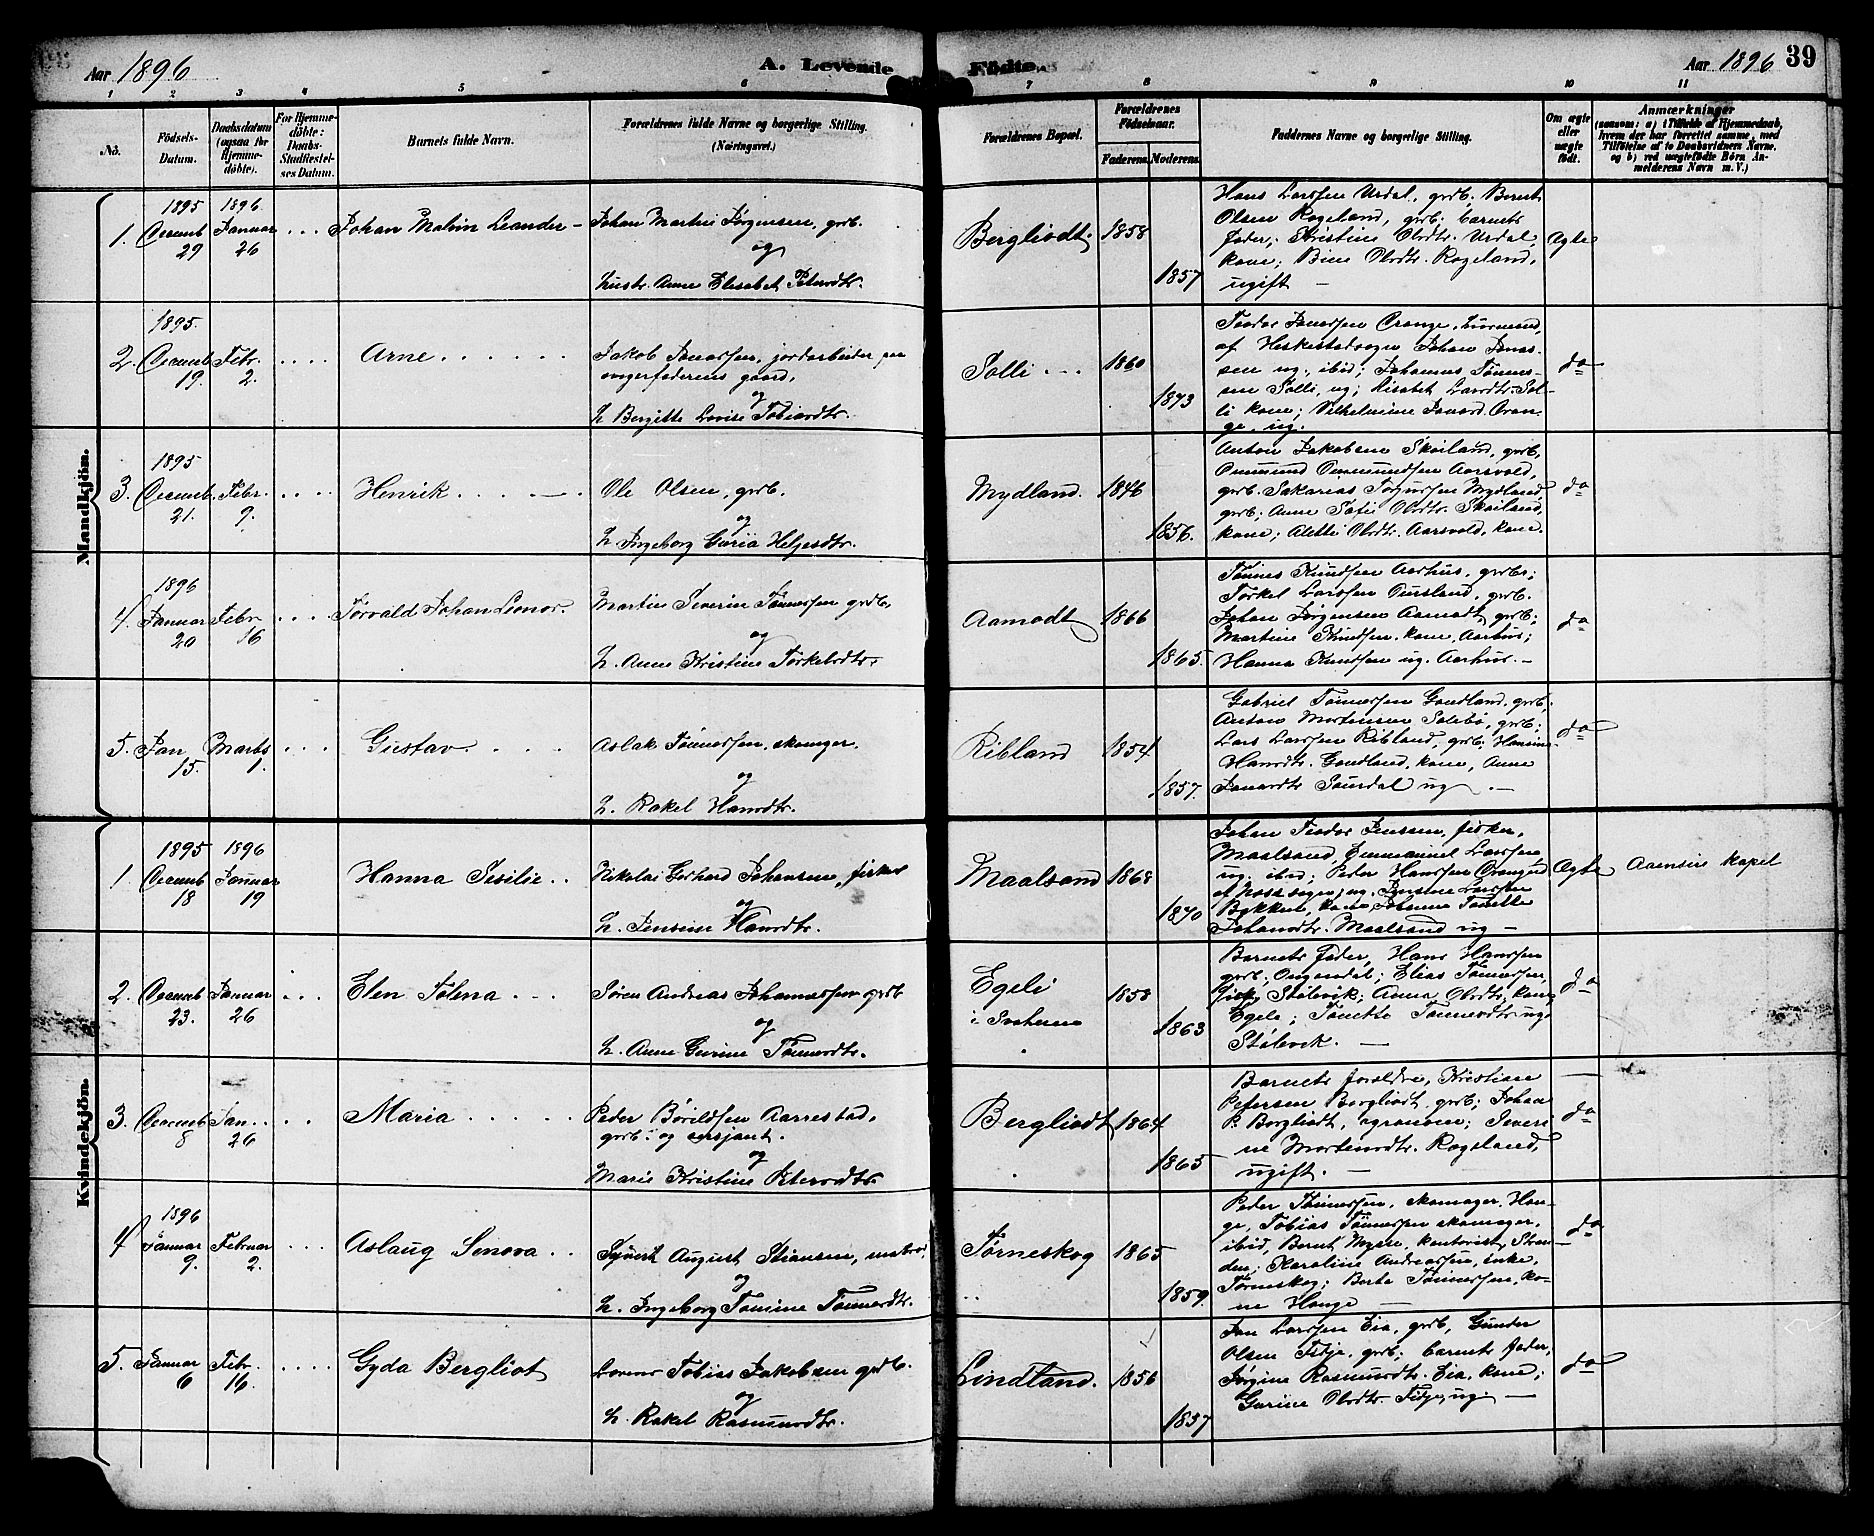 Aar 1896
A. Levende Födte.
Aar 1896
39
1 2 3 4 5 6 7 8 9 10 11
No.
Födsels-Datum.
Daabsdatum (ogsaa for Hjemmedöbte).
For Hjemmedöbte: Daabs-Stadfæstelses Datum.
Barnets fulde Navn.
Forældrenes fulde Navne og borgerlige Stilling. (Næringsvei.)
Forældrenes Bopæl.
Forældrenes Födselsaar.
Faderens. Moderens.
Faddernes Navne og borgerlige Stilling.
Om ægte eller uægte födt.
Anmærkninger
(saasom: a) i Tilfælde af Hjemmedaab, hvem der har forrettet samme, med Tilföielse af to Daabsvidners Navne, og b) ved uægtefödte Börn Anmelderens Navn m. V.)
Mandkjön.
1. 1895 Decemb 29
1896 Januar 26
Johan Malvin Leander
Johan Martin Jörgensen, grdb.
og
hustr. Anne Elisabet Petersdtr.
Bergliodt
1858
1857
Hans Larssen Urdal, grdb, Bernt
Olsen Rageland, grdb; barnets
fader; Kristine Olsdtr. Urdal,
kone; Bine Olsdtr. Rageland,
ugift
Ægte
2. 1895. Decemb 19.
Febr. 2.
Arne
Jakob Jonassen, jordarbeider paa
svigerfaderens gaard,
og
h. Bergitte Lovise Tobiasdtr.
Solli
1860
1873
Teodor Jonassen
af Heskestadsogn Johan Jonas-
sen ug., ibid; Johannes Tönnes-
sen Solli, ug; Larsdtr. Sol-
li kone; Vilhelmine
ge, ug.
do
3. 1895 Decemb. 21.
Febr. 9.
Henrik
Ole Olsen, grdb.
og
h. Ingeborg Guria Helgesdtr.
Mydland.
1846
1856.
Anton Jakobsen Skailand, grdb,
Ommund Ommundsen Aarsvold,
grdb. Sakarias Mydland,
grdb; Anne Sofie Olsdtr. Skailand,
kone; Alette Olsdtr. Aarsvold, kone.
do
4. 1896 Januar 20
Febr 16
Torvald Johan Leonor.
Martin Severin Tönnessen grdb,
og
h. Anne Kristine Torkelsdtr.
Aamodt
1866
1865.
Tönnes Knudsen Aarhus, grdbr;
Torkel Larssen Omsland, grdb.
Johan Jörgensen Aamodt grdb;
Martine Knudsen, kone, Aarhus;
Hanna Knudsen ug. Aarhus.
do
5. Jan 15.
Marts 1.
Gustav
Aslak Tönnessen, skomger.
og
h. Rakel Hansdtr.
Ribland
1854
1857.
Gabriel Tönnessen Gaudland, grdb;
Anton Mortensen Salebö, grdb;
Lars Larssen Ribland, grdb, Hansine
Hansdtr. Gaudland, kone, Anne
Jonasdtr ug
do
Kvindekjön.
1. 1895 Decemb 18
1896 Januar 19
Hanna Sesilie
Nikolai Gerhard Johansen, fisker
og
h. Jensine Hansdtr.
Maalsand
1868
1870
Johan Teodor Jenssen, fisker,
Maalsand, Emmanuel Larssen
ug. ibid; Peder Hanssen
ug. Larssen
Bakken, kone
Johansdtr. Maalsand ug
Ægte
Aamsire kapel
2. Decemb 23.
Januar 26
Elen Tolena
Sören Andreas Johannessen grdb
og
h. Anne Gurine Tönnesdtr.
Egeli
i Svaheia
1858
1863
Barnets fader, Hans Hanssen
grdb; Elias Tönnessen,
fisk, Stölevik; Anna Olsdtr, kone
Egeli; Tönette Tönnesdtr ug.
Stölevik.
do
3. Decemb 8
Jan. 26
Maria
Peder Böildsen Aarrestad,
grdb. og sersjant.
og
Marie Kristine Petersdtr.
Bergliodt
1864
1865
Barnets foreldre, Kristian
Petersen Bergliodt, grdb; Johan
P. Bergliodt, agronom; Severi-
ne Mortensdtr. Rageland,
ugift.
do
4. 1896 Januar 9.
Februar 2.
Aslaug Senova
Syvert August Stiansen, matros,
og
h. Ingeborg Tomine Tönnesdtr.
Törneskog
1865
1859.
Peder Tönnessen, skomager, Hau-
ge, Tobias Tönnessen skomager,
ibid, Bernt Mysse, kontorist, Stran-
den; Karoline Andreassen, enke,
Törneskog; Berta Tönnessen, ko-
ne Hauge
do
5. Januar 6
Febr. 16.
Gyda Bergliot
Tobias Jakobsen grdb.
og
h. Rakel Rasmusdtr.
Lindland.
1856
1857
Jan Larssen Eia, grdb, Gunder
Olsen Fidje, grdb; barnets fader;
Jörgine Rasmusdtr. Eia, kone;
Gurine Olsdtr. Fidje, ug.
do